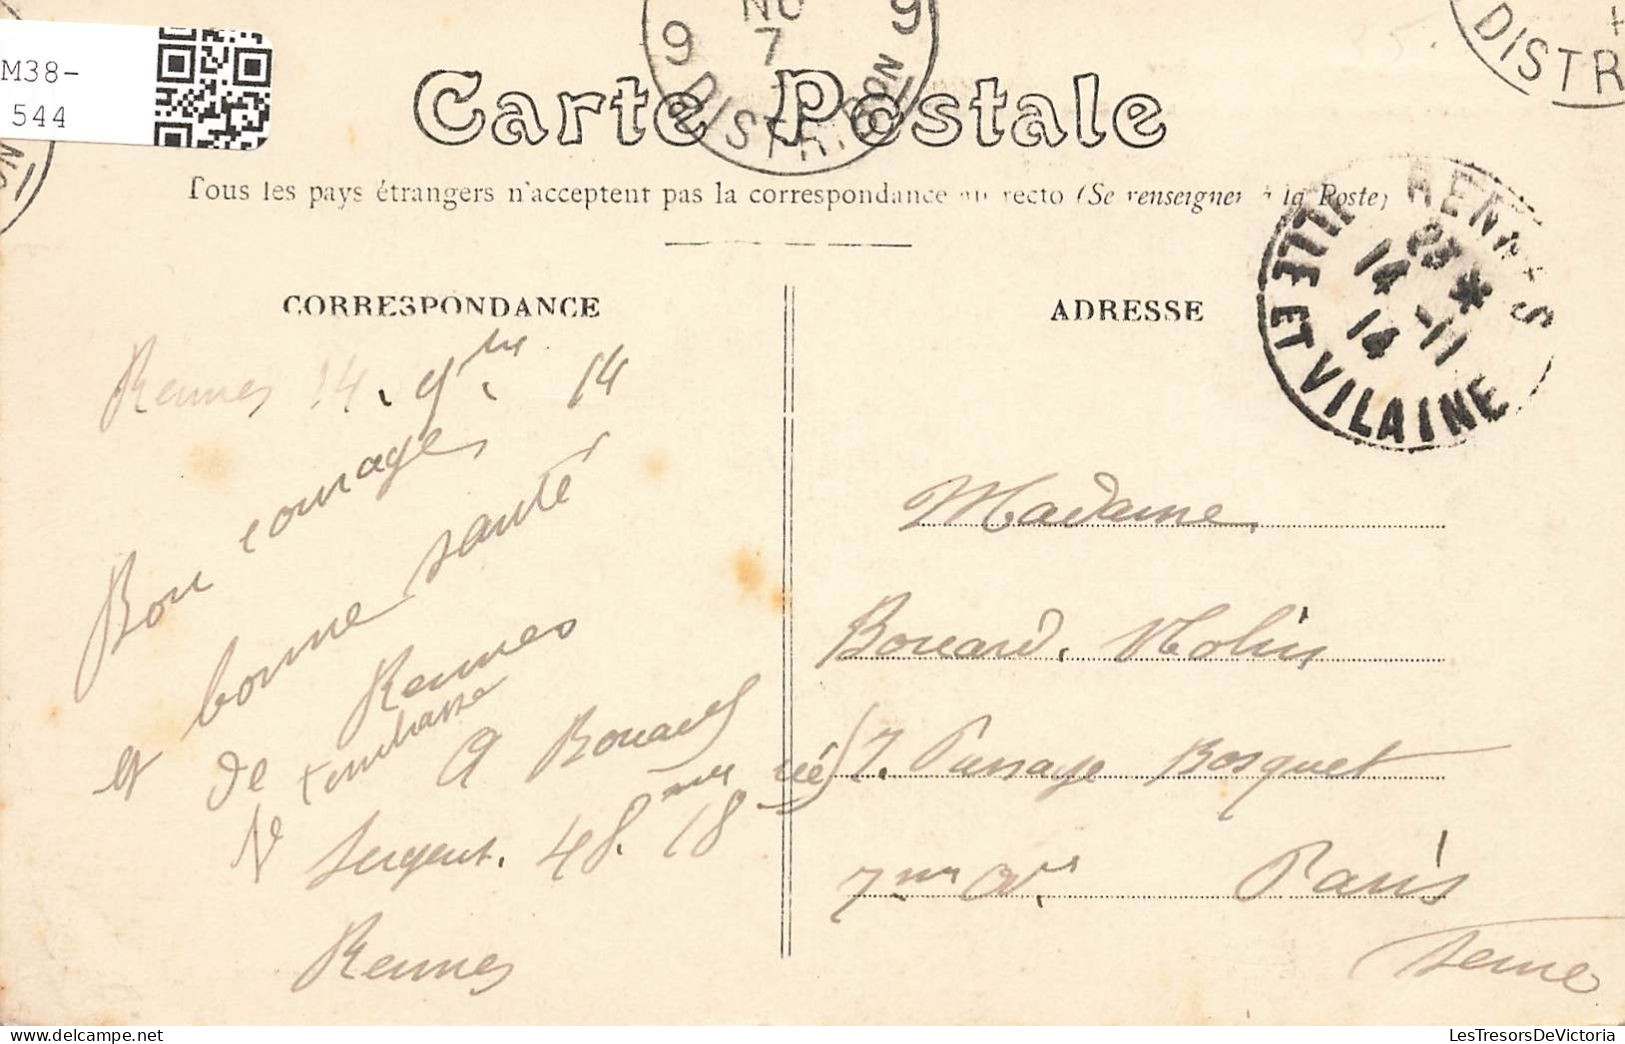 M38-
544
NO
9 7 9
DISTRI
DISTR
Carte Postale
Tous les pays étrangers n'acceptent pas la correspondance au recto (Se renseigner à la Poste)
RENNES
23 *
14 - 11
14
ILLE ET VILAINE
CORRESPONDANCE
ADRESSE
Rennes 14. 9bre. 14
Bon courage
et bonne santé
de Rennes
t'embrasse
A Bouard
Sergent. 48. 18ème cie
Rennes
Madame
Bouard. Molin
7. Passage Bosquet
7me Arr
Paris
Seine
LesTresorsDeVictoria.com